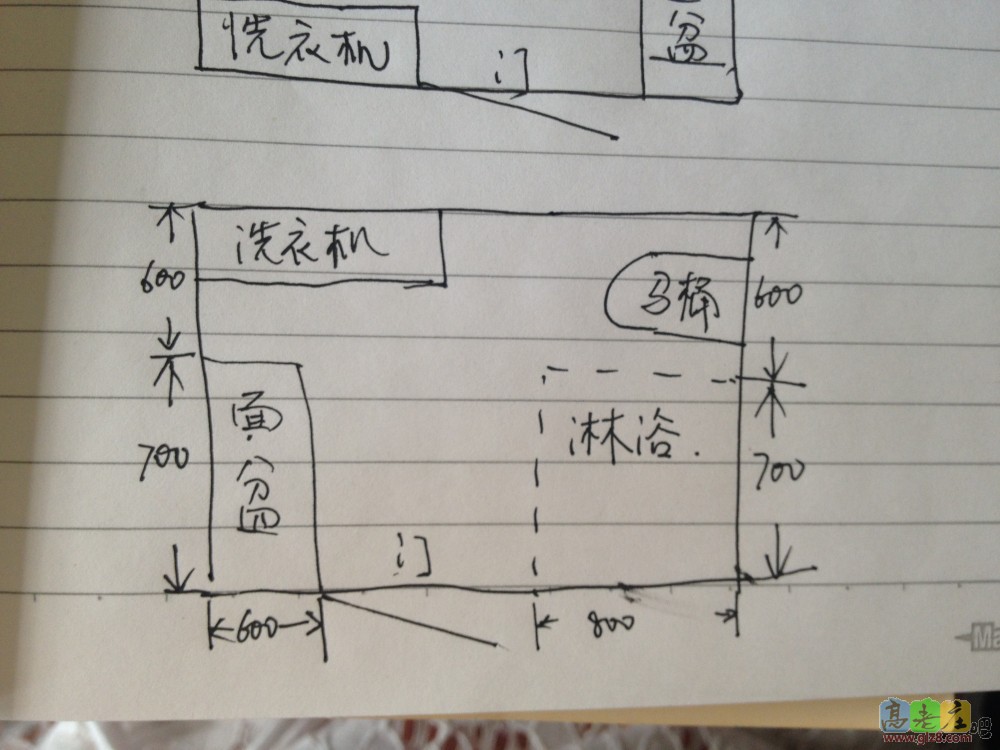 洗衣机
门
盆
洗衣机
600
马桶
600
面盆
700
淋浴.
700
门
600
800
Ma
高老庄
www.glz8.com